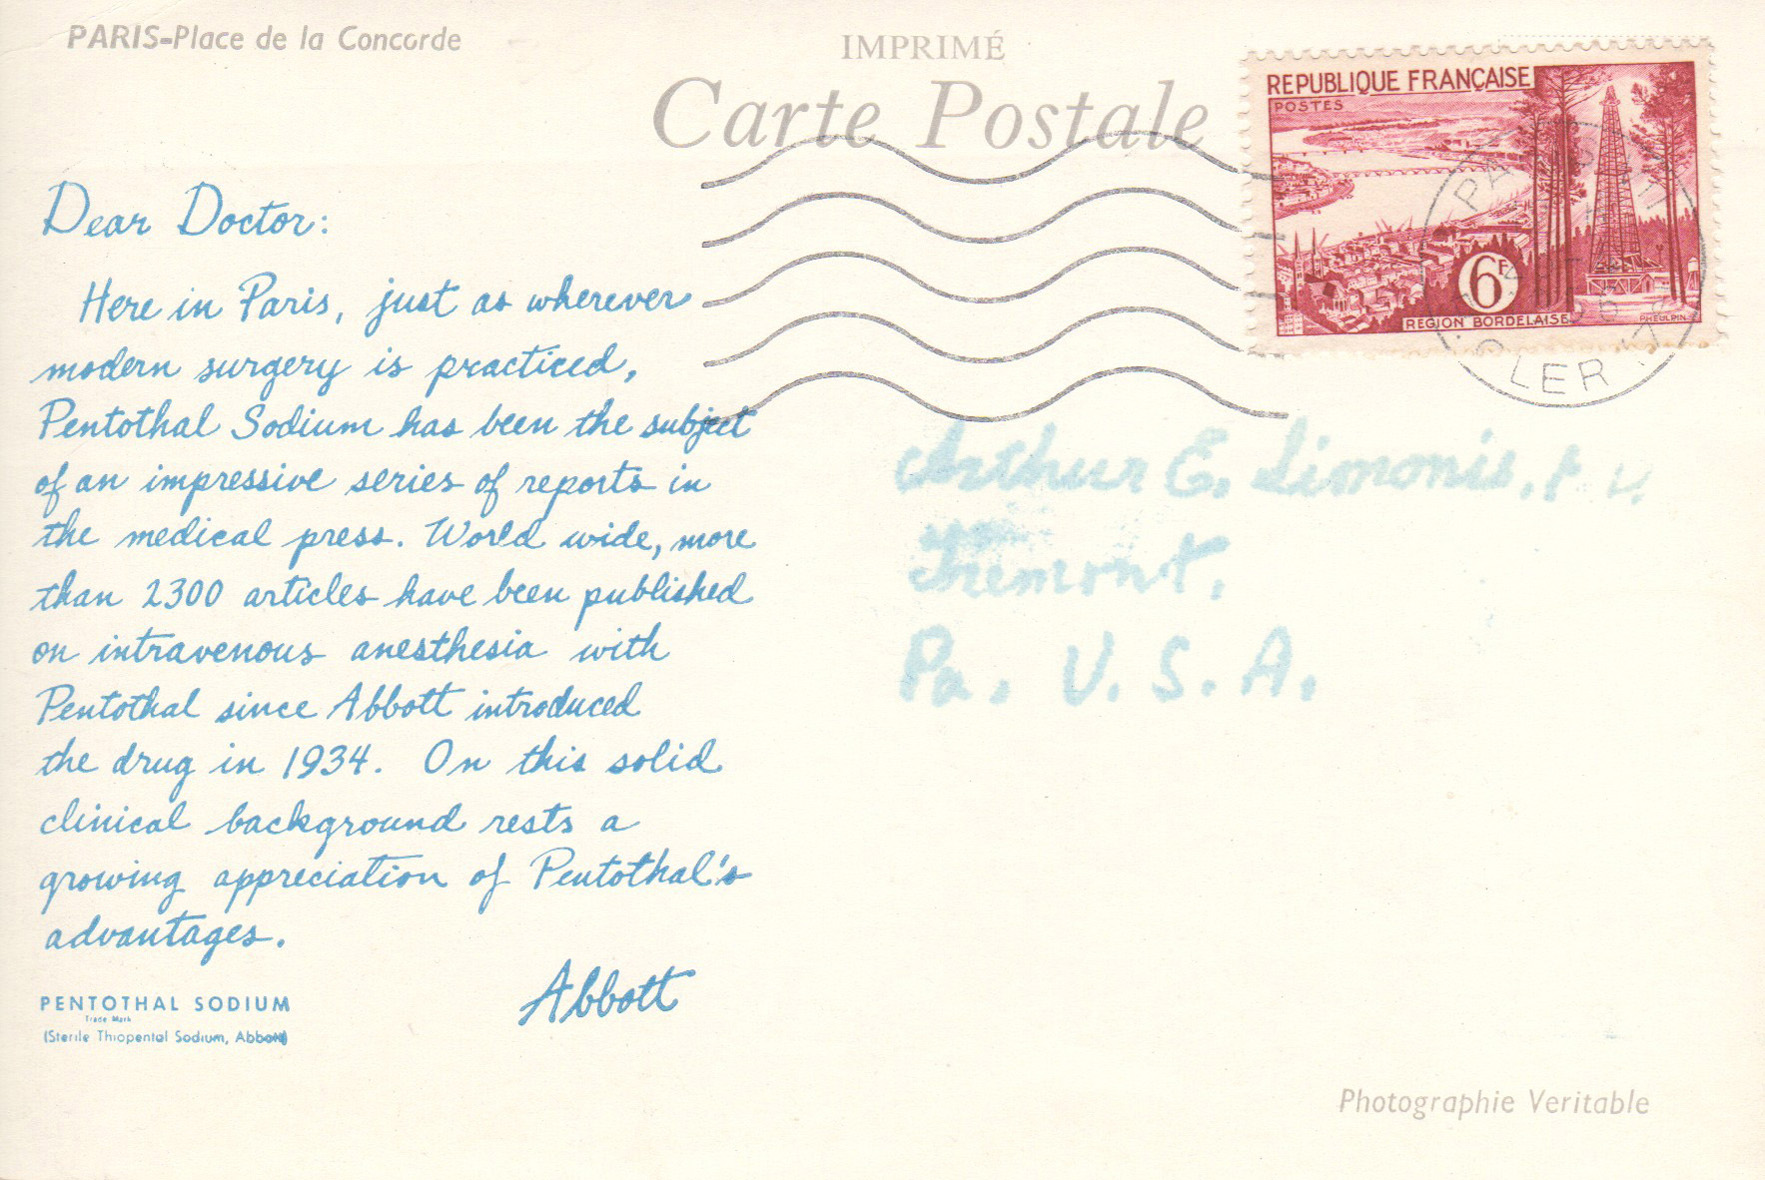 PARIS-Place de la Concorde
IMPRIMÉ
Carte Postale
REPUBLIQUE FRANÇAISE
POSTES
6F
REGION BORDELAISE
PHEULPIN
Dear Doctor:
Here in Paris, just as wherever
modern surgery is practiced,
Pentothal Sodium has been the subject
of an impressive series of reports in
the medical press. World wide, more
than 2300 articles have been published
on intravenous anesthesia with
Pentothal since Abbott introduced
the drug in 1934. On this solid
clinical background rests a
growing appreciation of Pentothal's
advantages.
Abbott
PENTOTHAL SODIUM
Trade Mark
(Sterile Thiopental Sodium, Abbott)
Arthur E. Limonis,
Tremont,
Pa. U.S.A.
Photographie Veritable